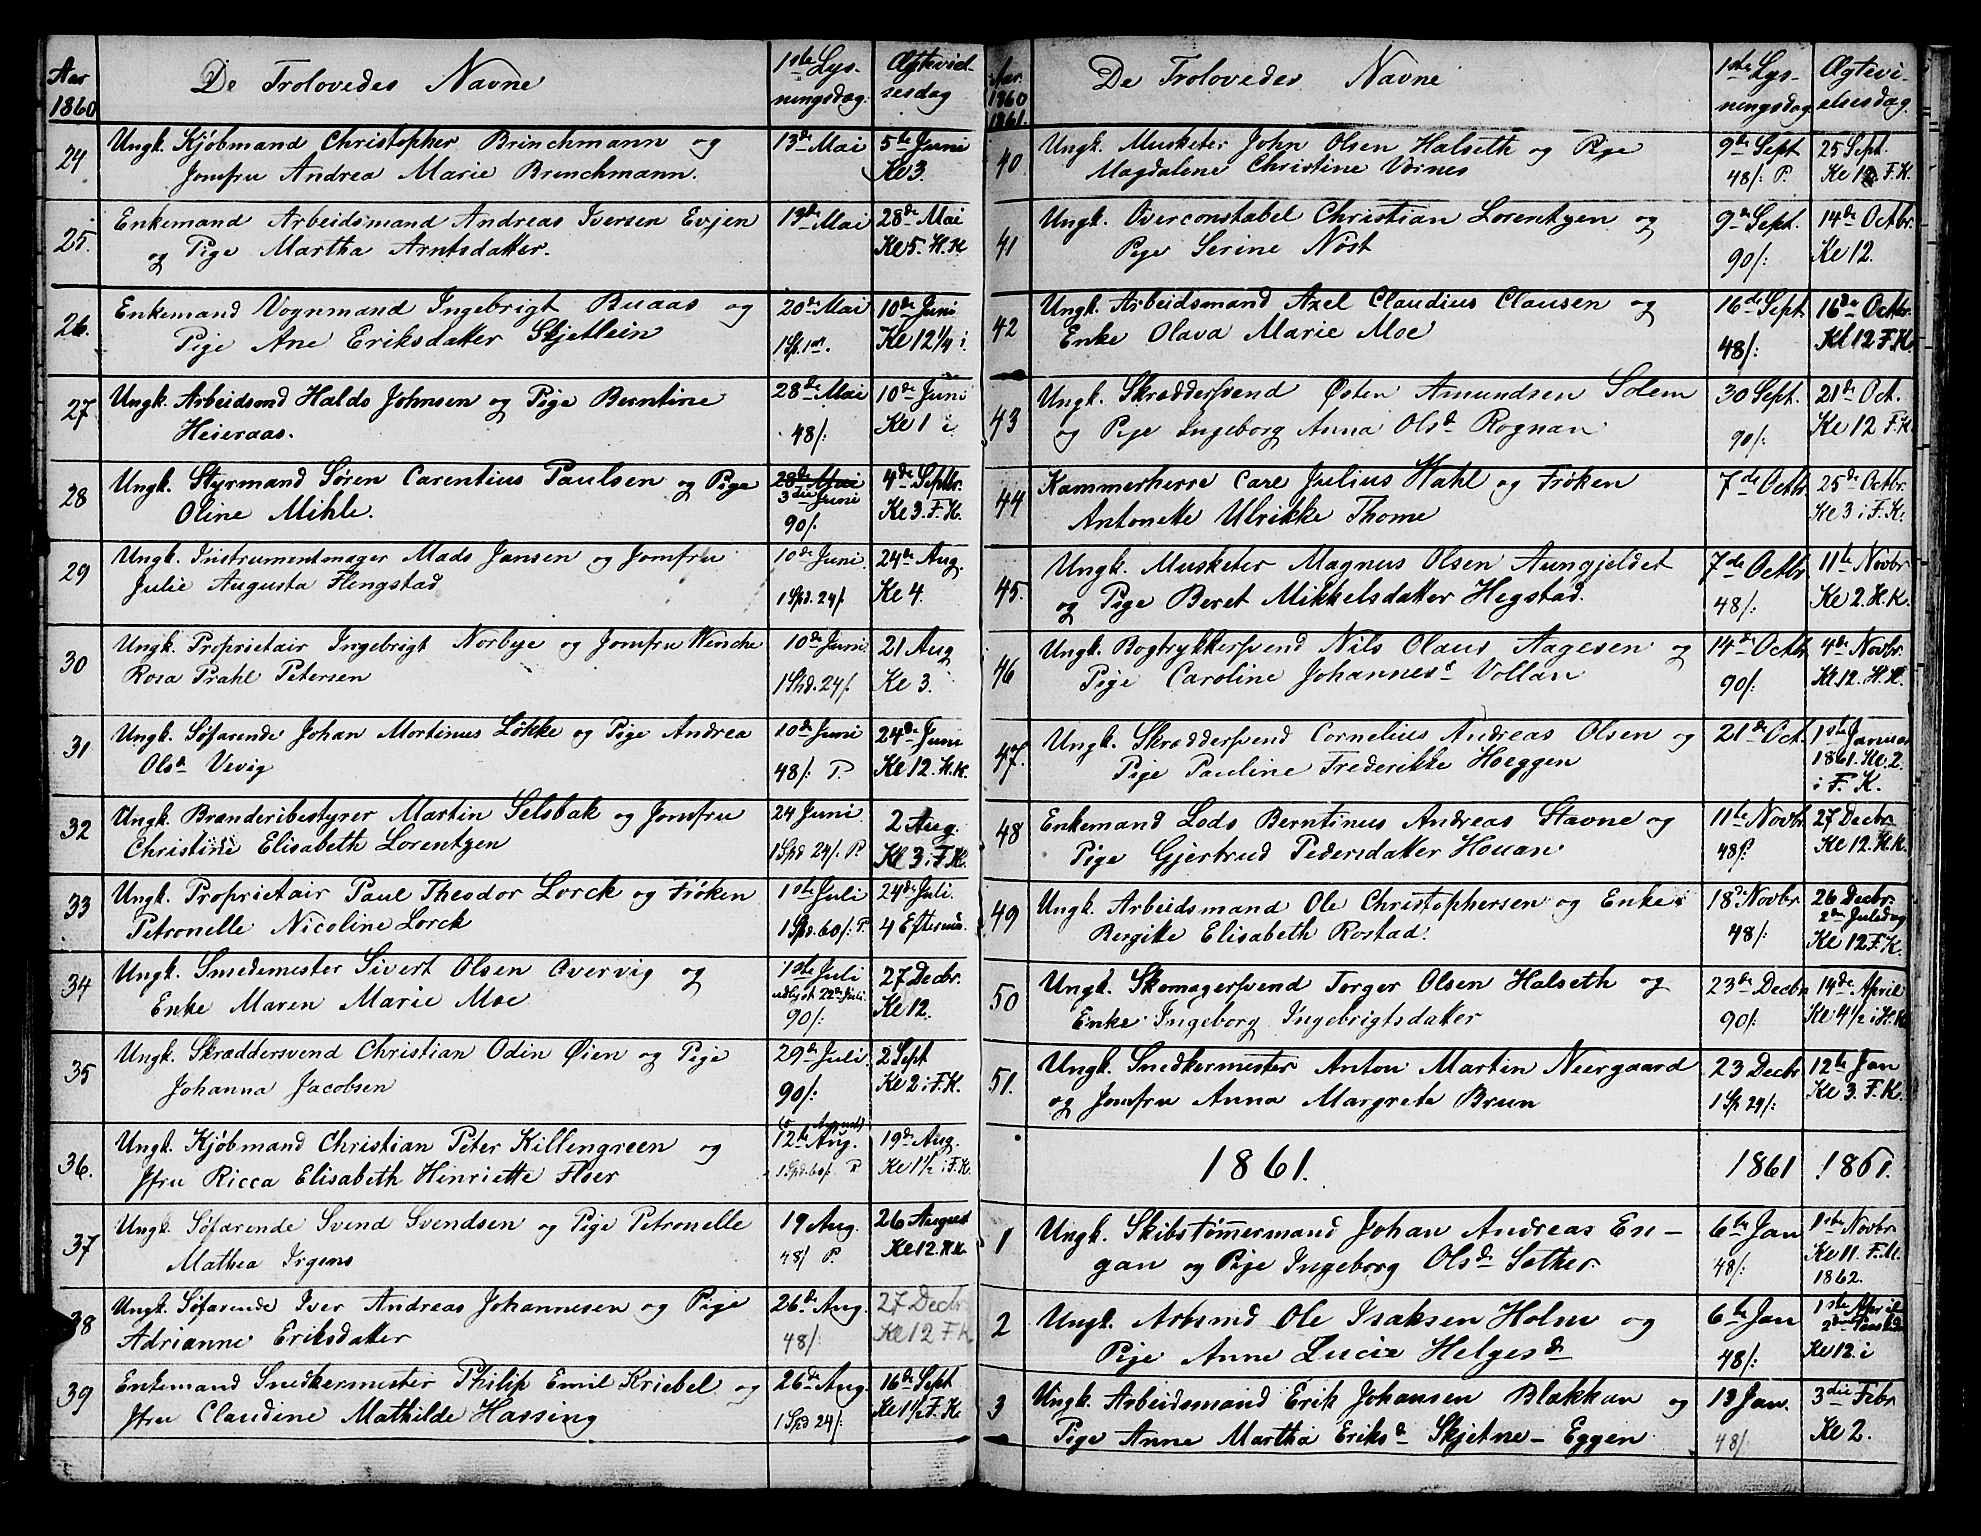 Aar 1860
De Trolovedes Navne
1ste Lys-
ningsdag.
Ægtevi-
elsesdag
24 Ungk. Kjøbmand Christopher Brinchmann og
Jomfru Andrea Marie Brinchmann.
13de Mai
5te Juni
Kl 3.
25. Enkemand Arbeidsmand Andreas Iversen Evjen
og Pige Martha Arntsdatter.
13de Mai
28de Mai
Kl 5. H. K
26. Enkemand Vognmand Ingebrigt Buaas og
Pige Ane Eriksdatter Skjetlein
20de Mai
1 Sp. 1
10de Juni
Kl 12 1/4 i.
27. Ungk. Arbeidsmd Halds Johnsen og Pige Berntine
Heieraas.
28de Mai
48/:
10de Juni
Kl 1 i.
28 Ungk. Styrmand Søren Carentius Paulsen og Pige
Oline Mihle.
28de Mai
3die Juni
90/:
4de Septbr.
Kl 3. F. K.
29 Ungk. Instrumentmager Mads Jansen og Jomfru
Julie Augusta Flengstad
10de Juni
1 Spd. 24/.
24de Aug.
Kl 4.
30 Ungk. Proprietair Ingebrigt Norbye og Jomfru Wenche
Rosa Prahl Petersen
10de Juni
1 Spd. 24/.
21 Aug
Kl 3.
31 Ungk. Søfarende Johan Mortinus Løkke og Pige Andrea
Olsd Vevig
10de Juni
48/: P.
24de Juni
Kl 12. H. K.
32 Ungk. Brænderibestyrer Martin Selsbak og Jomfru
Christine Elisabeth Lorentzen
24 Juni
1 Spd 24/. P.
2 Aug.
Kl 3 i F. K.
33 Ungk. Proprietair Paul Theodor Lorck og Frøken
Petronelle Nicoline Lorck
1ste Juli
1 Spd. 60/: P.
24de Juli.
4 Eftermid.
34 Ungk. Smedemester Sivert Olsen Overvig og
Enke Maren Marie Moe
1ste Juli
udlyst 22de Juli.
90/:
27 Decbr.
Kl 12.
35 Ungk. Skræddersvend Christian Odin Øien og Pige
Johanna Jacobsen
29de Juli
90/:
2 Sept
Kl 2 i F. K.
36. Ungk. Kjøbmand Christian Peter Killengreen og
Jfru Ricca Elisabeth Henriette Flser
12te Aug.
1 Spd. 60/. P.
19de Aug.
Kl 1 1/2 i F. K.
37 Ungk. Søfarende Svend Svendsen og Pige Petronelle
Mathea Irgens
19 Aug.
48/ P.
26 August
Kl 12. H. K.
38 Ungk. Søfarende Iver Andreas Johannesen og Pige
Adrianne Eriksdatter
26de Aug.
48/:
27 Decbr
Kl 12 F. K.
39 Enkemand Snedkermester Philip Emil Kriebel og
Jfru Claudine Mathilde Hassing
26de Aug.
1 Spd 24/:
16de Sept
Kl 1 1/2 F. K.
Aar. 1860 1861.
De Trolovedes Navne
1ste Lys-
ningsdag
Ægtevi-
elsesdag.
40 Ungk. Musketer John Olsen Halseth og Pige
Magdalene Christine Vornes
9de Sept
48/: P.
25 Sept.
Kl 12. F. K.
41 Ungk. Overconstabel Christian Lorentzen og
Pige Serine Nøst
9de Sept.
90/:
14de Octbr.
Kl 12.
42 Ungk. Arbeidsmand Axel Claudius Clausen og
Enke Olava Marie Moe
16de Sept
48/:
16de Octbr.
Kl 12 F. K.
43 Ungk. Skræddersvend Østen Amundsen Solem
og Pige Ingeborg Anna Olsd Rognan
30 Sept.
90/:
21de Oct.
Kl 12 F. K.
44 Kammerherre Carl Julius Wahl og Frøken
Antonette Ulrikke Thome
7de Octbr
25de Octbr.
Kl 3 i F. K.
45. Ungk. Musketer Magnus Olsen Aungjeldet
og Pige Beret Mikkelsdatter Hegstad.
7de Octbr
48/:
11te Novbr
Kl 2. H. K.
46 Ungk. Bogtrykkersvend Nils Olaus Aagesen og
Pige Caroline Johannesd Vollan
14de Octbr
90/:
4de Novbr.
Kl 12. H. K.
47. Ungk. Skræddersvend Cornelius Andreas Olsen og
Pige Pauline Frederikke Hoeggen
21de Oct.
1ste Januar
1861. Kl. 2.
i F. K.
48 Enkemand Lods Berntinus Andreas Stavne og
Pige Gjertrud Pedersdatter Houan
11te Novbr
48/:
27 Decbr.
Kl 12. H. K.
49 Ungk. Arbeidsmand Ole Christophersen og Enke
Bergitte Elisabeth Rostad.
18de Novbr
48/:
26 Decbr.
2den Juledag
Kl 12 F. K.
50 Ungk. Skomagersvend Torger Olsen Halseth og
Enke Ingeborg Ingebrigtsdatter
23de Decbr
90/:
14de April
Kl 4 1/2 i H. K
51. Ungk. Snedkermester Anton Martin Neergaard
og Jomfru Anna Margrete Brun
23 Decbr
1 Sp 24/:
12te Jan
Kl 3. F. K.
1861.
1861
1861.
1 Ungk. Skibstømmermand Johan Andreas En-
gan og Pige Ingeborg Olsd Sother.
6te Jan
48/:
1ste Novbr
Kl 11. F. M.
1862.
2 Ungk. Arbsmd Ole Isaksen Holm og
Pige Anne Lucie Helgesd
6te Jan
48/:
1ste April
2den Paaskedag
Kl 12. i
3 Ungk. Arbeidsmand Erik Johansen Blakkan og
Pige Anne Martha Eriksd Skjetne-Eggen
13 Jan.
48/.
3die Febr
Kl 2.